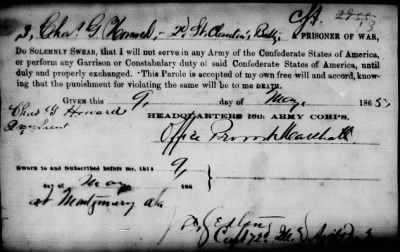 I, Chas. G Howard, - A PRISONER OF WAR,
DO SOLEMNLY SWEAR, that I will not serve in any Army of the Confederate States of America,
or perform any Garrison or Constabulary duty of said Confederate States of America, until
duly and properly exchanged. This Parole is accepted of my own free will and accord, know-
ing that the punishment for violating the same will be to me DEATH.
GIVEN this 9, day of May, 1865
Chas G Howard
HEADQUARTERS 16th ARMY CORPS.
Office Provost Marshall
Sworn to and Subscribed before me, this 9,
day of May 186
at Montgomery ala